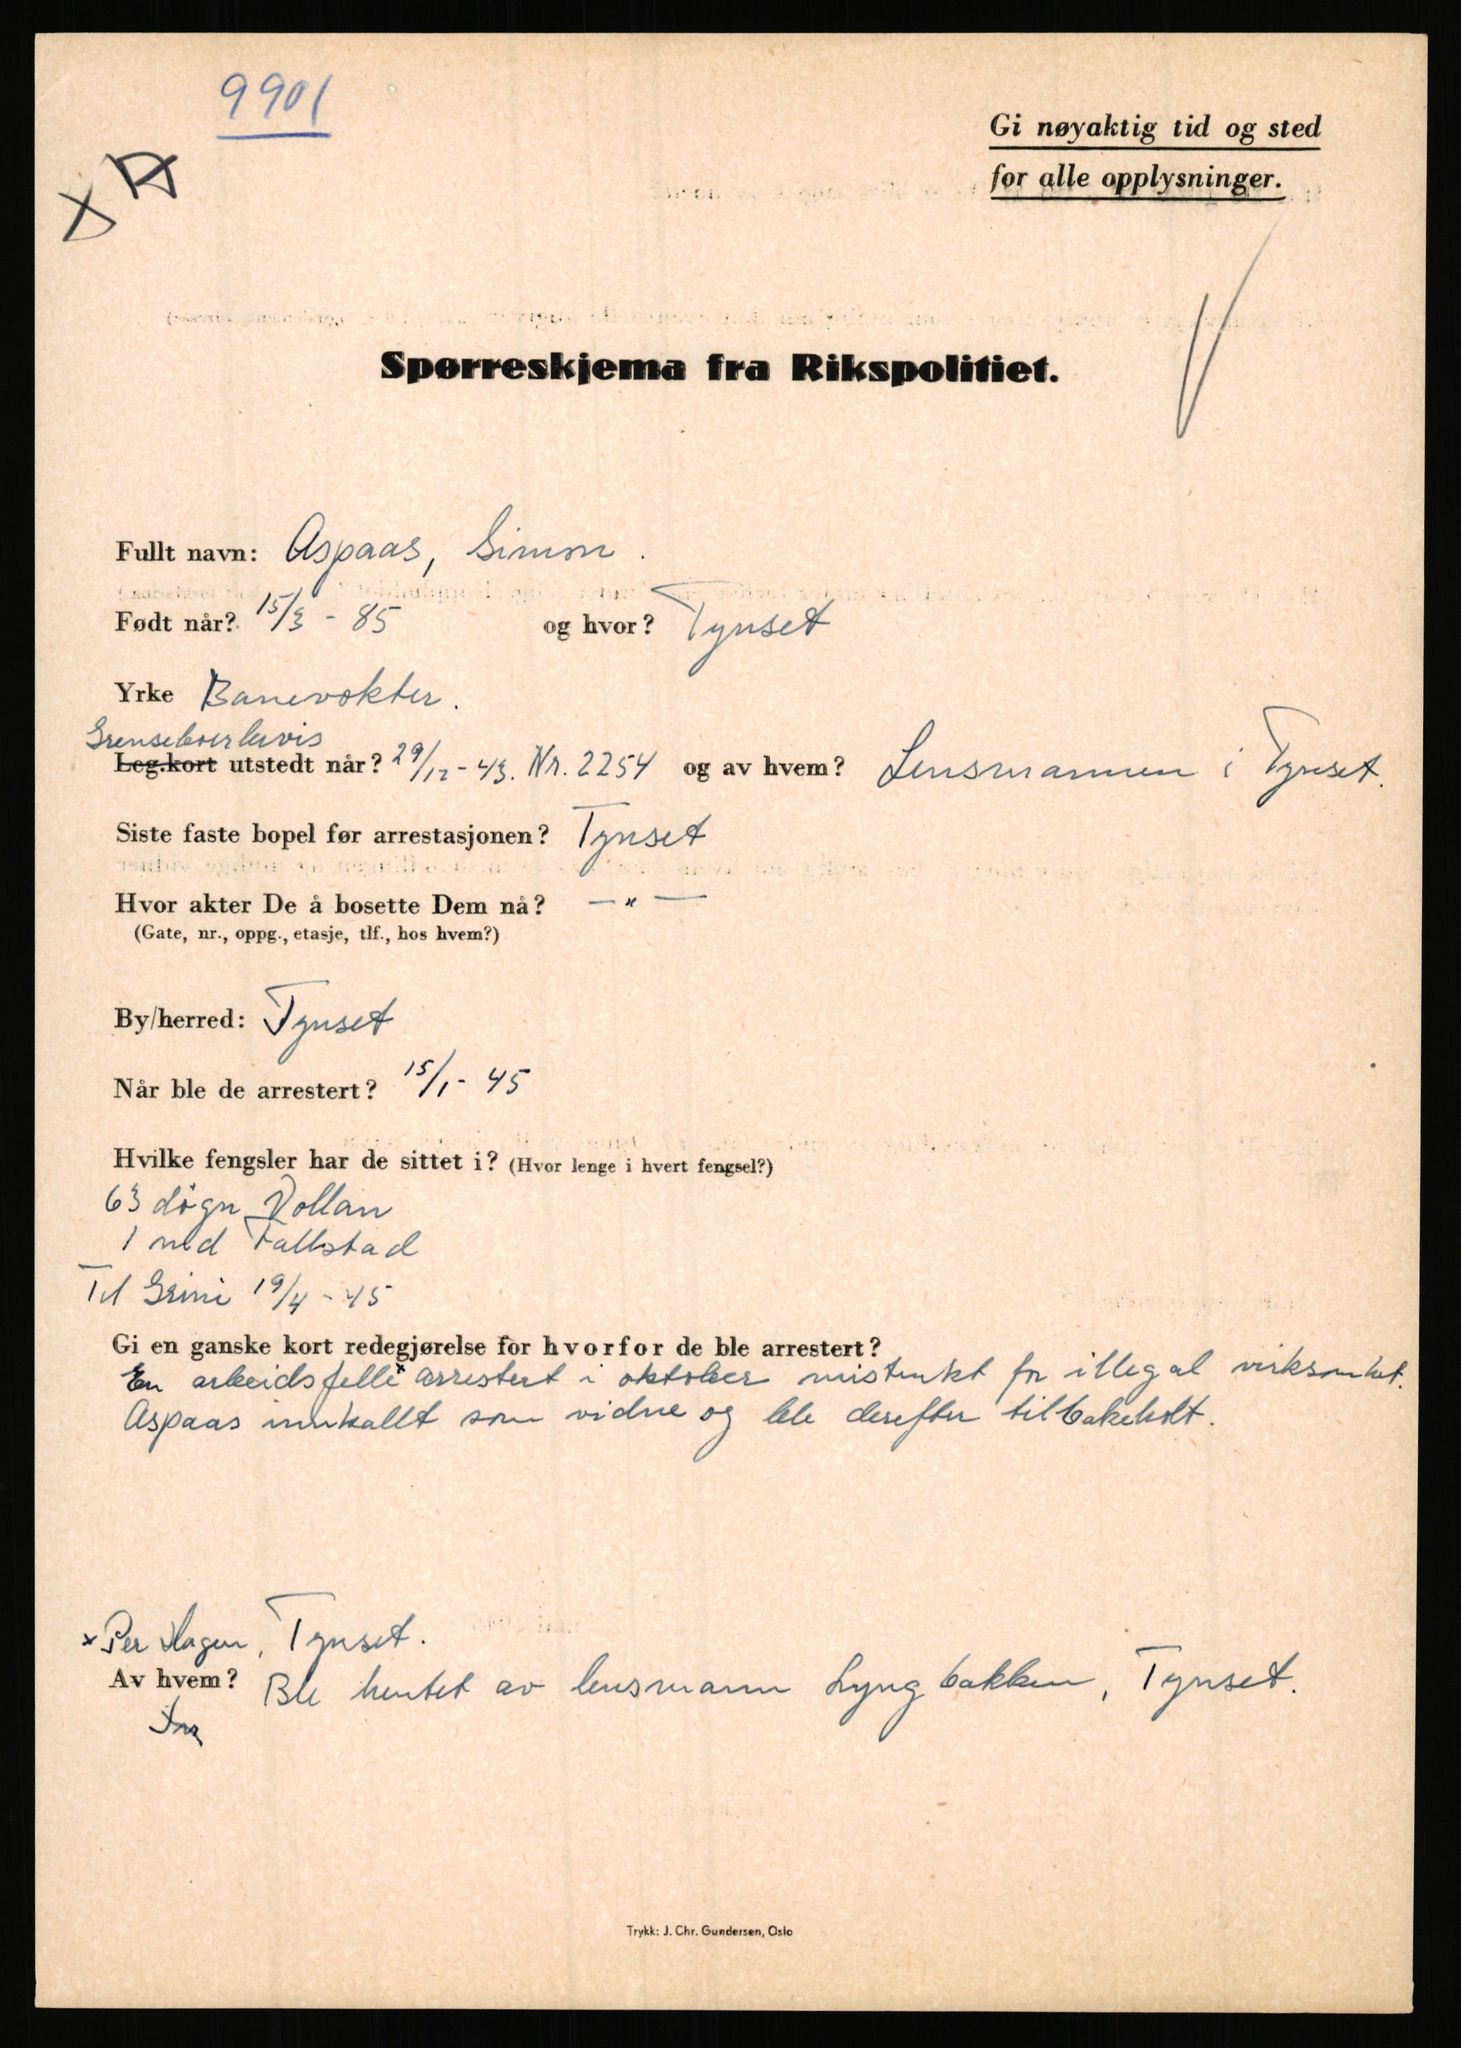 9901
Gi nøyaktig tid og sted
for alle opplysninger.
Spørreskjema fra Rikspolitiet.
Fullt navn: Aspaas, Simon.
Født når? 15/3 - 85 og hvor? Tynset
Yrke Banevokter.
Grenseboerbevis
Leg.kort utstedt når? 29/12 - 43. Nr. 2254 og av hvem? Lensmannen i Tynset.
Siste faste bopel før arrestasjonen? Tynset
Hvor akter De å bosette Dem nå? — " —
(Gate, nr., oppg., etasje, tlf., hos hvem?)
By/herred: Tynset
Når ble de arrestert? 15/1 - 45
Hvilke fengsler har de sittet i? (Hvor lenge i hvert fengsel?)
63 døgn Vollan
1 md Falkstad
Til Grini 19/4 - 45
Gi en ganske kort redegjørelse for hvorfor de ble arrestert?
En arbeidsfelle x arrestert i oktober mistenkt for illegal virksomhet.
Aspaas innkallt som vidne og ble derefter tilbakeholt.
x Per Hagen, Tynset.
Av hvem? Ble hentet av lensmann Lyngbakken, Tynset.
Trykk: J. Chr. Gundersen, Oslo